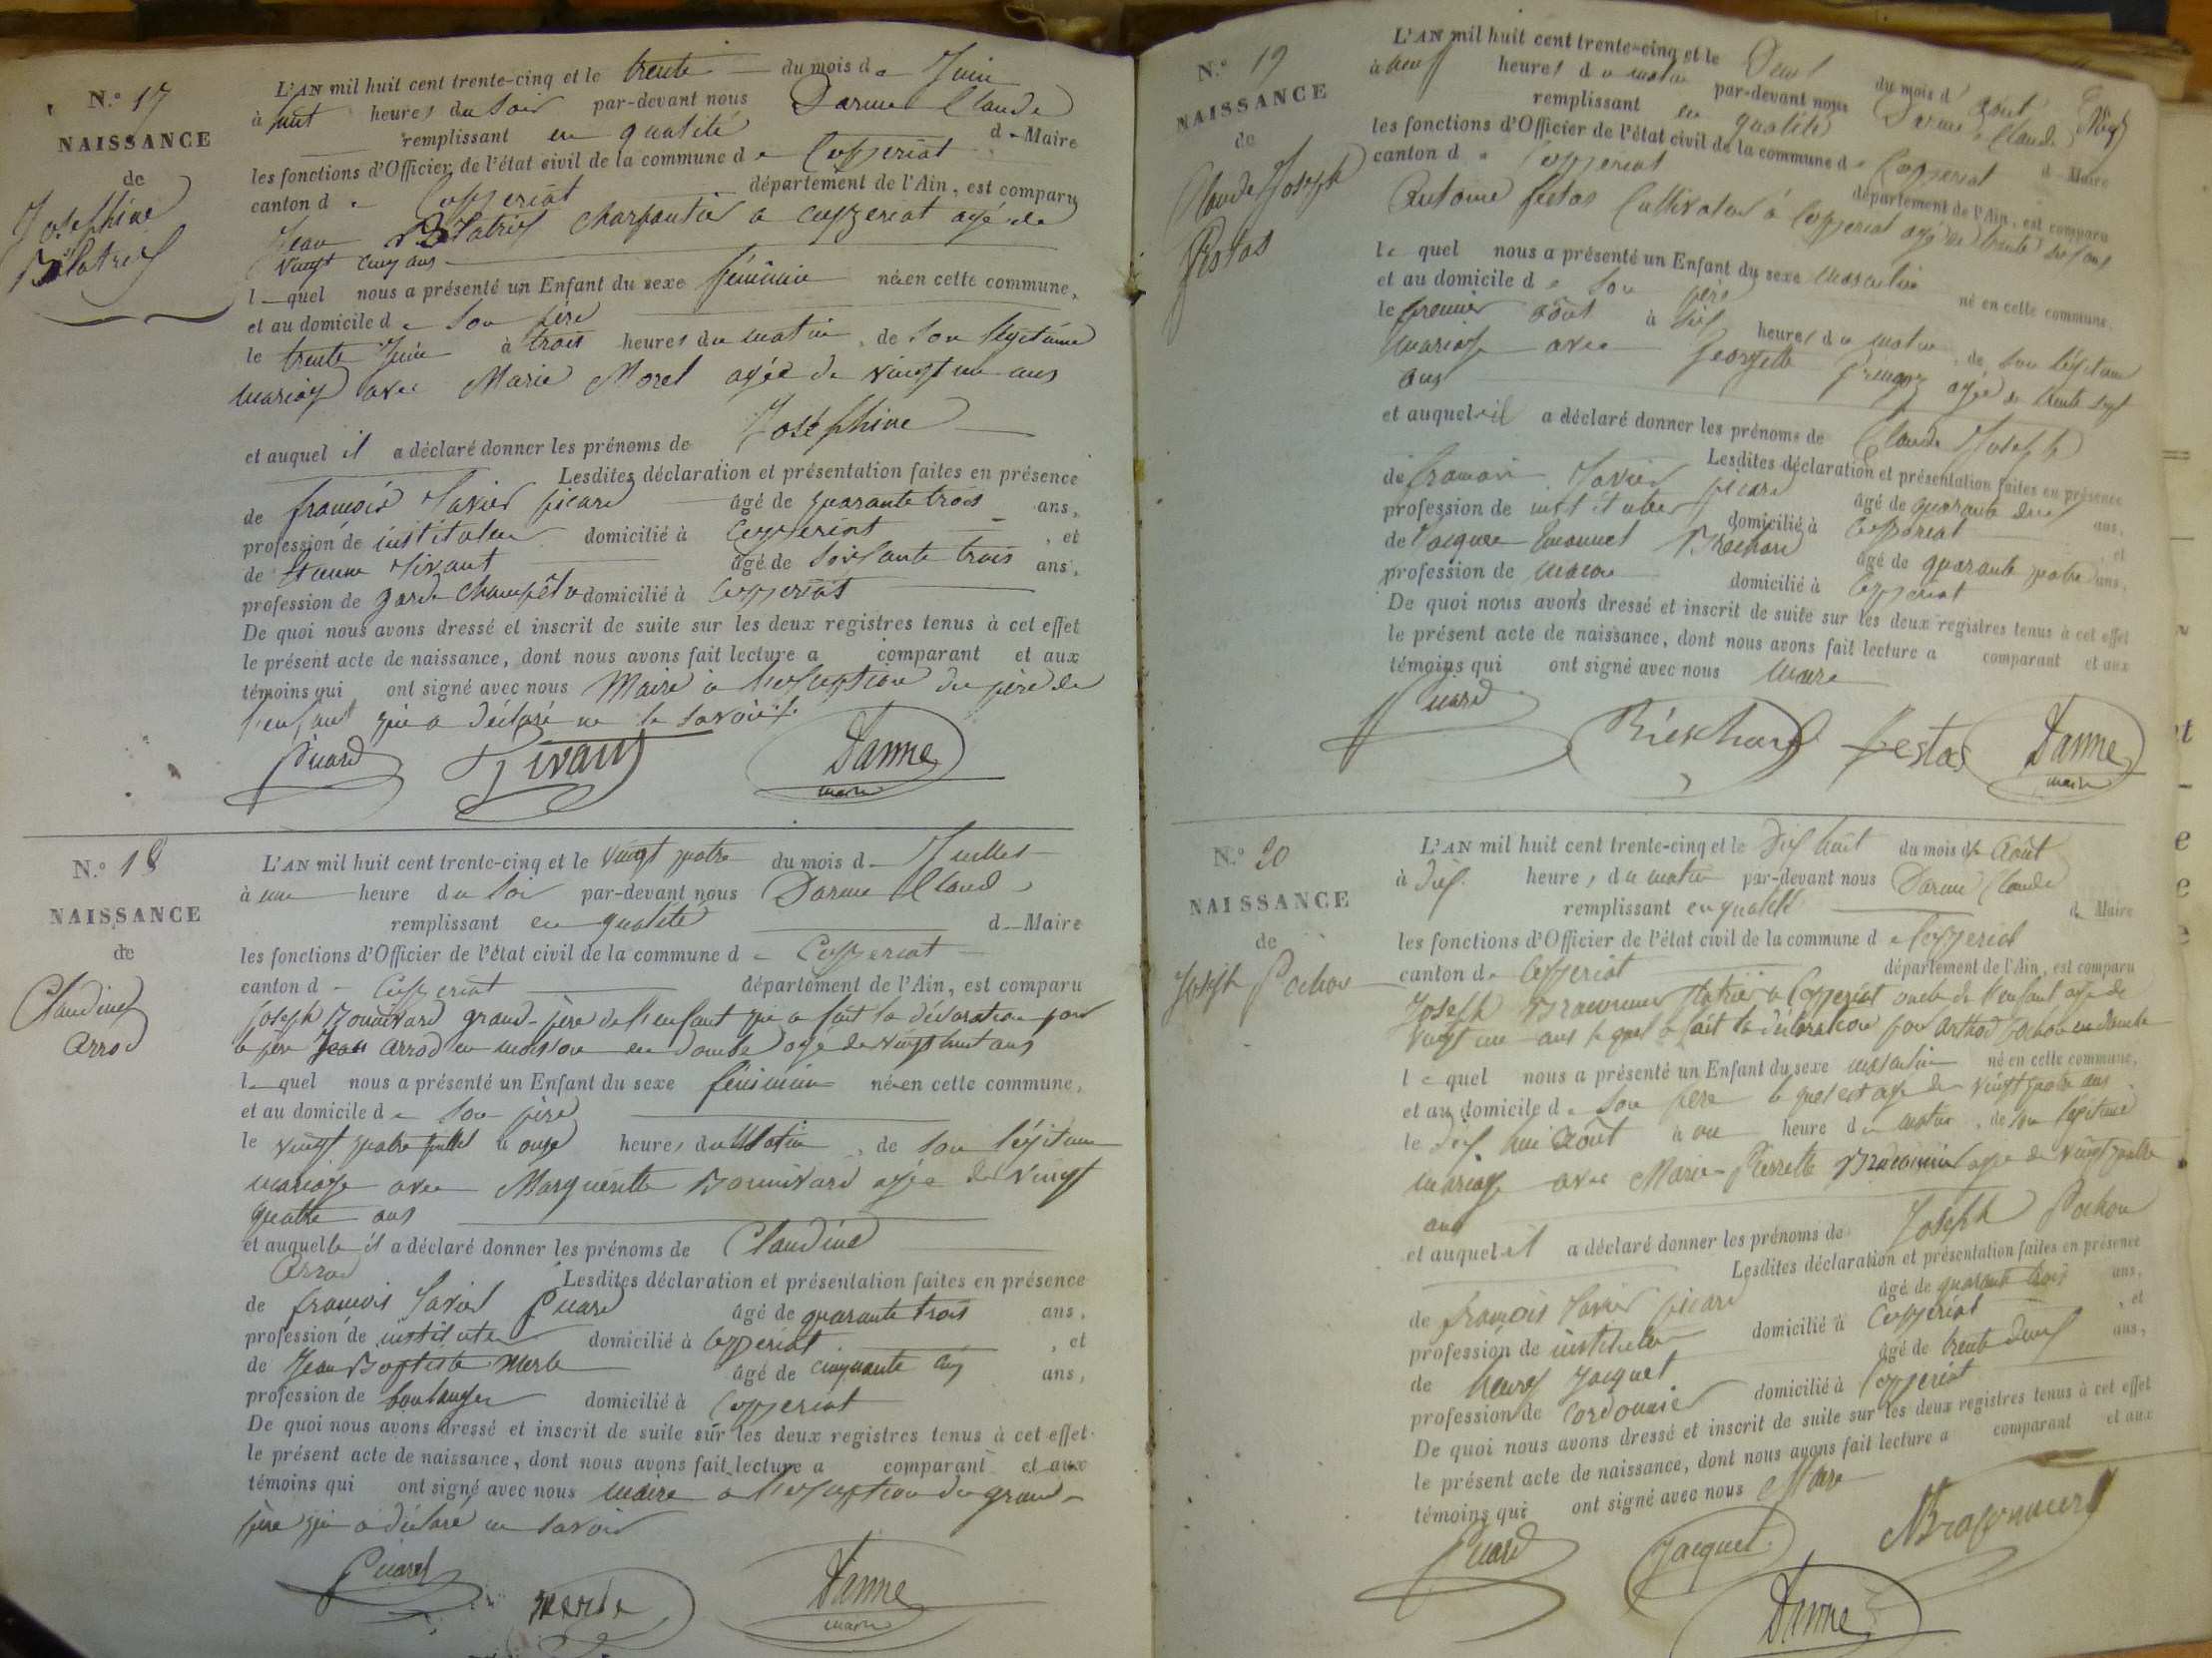 N.° 17
NAISSANCE
de
Joséphine
L'AN mil huit cent trente-cinq et le trente du mois de Juin
à huit heures du soir par-devant nous Darme Claude
remplissant en qualité d Maire
les fonctions d'Officier de l'état civil de la commune de Ceyzeriat
canton de Ceyzeriat département de l'Ain, est comparu
Jean charpentier a ceyzeriat agé de
vingt cinq ans
l quel nous a présenté un Enfant du sexe féminin né en cette commune,
et au domicile de son père
le trente Juin à trois heures du matin, de son légitime
mariage avec Marie Morel agée de vingt un ans
et auquel il a déclaré donner les prénoms de Joséphine
Lesdites déclaration et présentation faites en présence
de françois Xavier picard âgé de quarante trois ans,
profession de instituteur domicilié à Ceyzeriat, et
de âgé de soixante trois ans,
profession de garde champêtre domicilié à Ceyzeriat
De quoi nous avons dressé et inscrit de suite sur les deux registres tenus à cet effet
le présent acte de naissance, dont nous avons fait lecture a comparant et aux
témoins qui ont signé avec nous Maire à l'exception du père de
l'enfant qui a déclaré ne le savoir
Picard Darme
maire
N.° 18
NAISSANCE
de
Claudine
Arrod
L'AN mil huit cent trente-cinq et le vingt quatre du mois d Juillet
à une heure du soir par-devant nous Darme Claude
remplissant en qualité d Maire
les fonctions d'Officier de l'état civil de la commune de Ceyzeriat
canton d Ceyzeriat département de l'Ain, est comparu
joseph Bonnivard grand-père de l'enfant qui a fait la déclaration pour
le père Jean Arrod en moisson en Dombe agé de vingt huit ans
lequel nous a présenté un Enfant du sexe féminin né en cette commune,
et au domicile de son père
le vingt quatre juillet à onze heures du Matin, de son légitime
mariage avec Marguerite Bonnivard agée de vingt
quatre ans
et auquel il a déclaré donner les prénoms de Claudine
Arrod Lesdites déclaration et présentation faites en présence
de françois Xavier Picard âgé de quarante trois ans,
profession de instituteur domicilié à Ceyzeriat, et
de Jean Baptiste Merle âgé de cinquante cinq ans,
profession de boulanger domicilié à Ceyzeriat
De quoi nous avons dressé et inscrit de suite sur les deux registres tenus à cet effet
le présent acte de naissance, dont nous avons fait lecture a comparant et aux
témoins qui ont signé avec nous maire a l'exception du grand-
père qui a déclaré ne savoir
Picard merle Darme
maire
N.° 19
NAISSANCE
de
Claude Joseph
L'AN mil huit cent trente-cinq et le Deux du mois d'août
à neuf heures du matin par-devant nous Darme Claude
remplissant en qualité d Maire
les fonctions d'Officier de l'état civil de la commune de Ceyzeriat
canton de Ceyzeriat département de l'Ain, est comparu
Antoine festas Cultivateur à Ceyzeriat agé de trente six ans
le quel nous a présenté un Enfant du sexe masculin né en cette commune,
et au domicile de son père
le premier août à six heures du matin, de son légitime
mariage avec Georgette agée de trente sept
ans
et auquel il a déclaré donner les prénoms de Claude Joseph
Lesdites déclaration et présentation faites en présence
de françois Xavier picard âgé de quarante ans,
profession de instituteur domicilié à Ceyzeriat et
de Emanuel âgé de quarante quatre ans,
profession de maçon domicilié à Ceyzeriat
De quoi nous avons dressé et inscrit de suite sur les deux registres tenus à cet effet
le présent acte de naissance, dont nous avons fait lecture a comparant et aux
témoins qui ont signé avec nous maire
Picard festas Darme
maire
N.° 20
NAISSANCE
de
Joseph Pochon
L'AN mil huit cent trente-cinq et le dix huit du mois de Août
à dix heures du matin par-devant nous Darme Claude
remplissant en qualité d Maire
les fonctions d'Officier de l'état civil de la commune de Ceyzeriat
canton de Ceyzeriat département de l'Ain, est comparu
Joseph à Ceyzeriat oncle de l'enfant agé de
vingt un ans lequel a fait la déclaration pour Pochon en Dombe
lequel nous a présenté un Enfant du sexe masculin né en cette commune,
et au domicile de son père lequel est agé de vingt quatre ans
le dix huit Août à une heure du matin, de son légitime
mariage avec Marie-Pierrette agée de vingt quatre
ans
et auquel il a déclaré donner les prénoms de Joseph Pochon
Lesdites déclaration et présentation faites en présence
de françois Xavier picard âgé de quarante trois ans,
profession de instituteur domicilié à Ceyzeriat, et
de henry Jacquet âgé de trente deux ans,
profession de cordonnier domicilié à Ceyzeriat
De quoi nous avons dressé et inscrit de suite sur les deux registres tenus à cet effet
le présent acte de naissance, dont nous avons fait lecture a comparant et aux
témoins qui ont signé avec nous Maire
Picard Jacquet
Darme